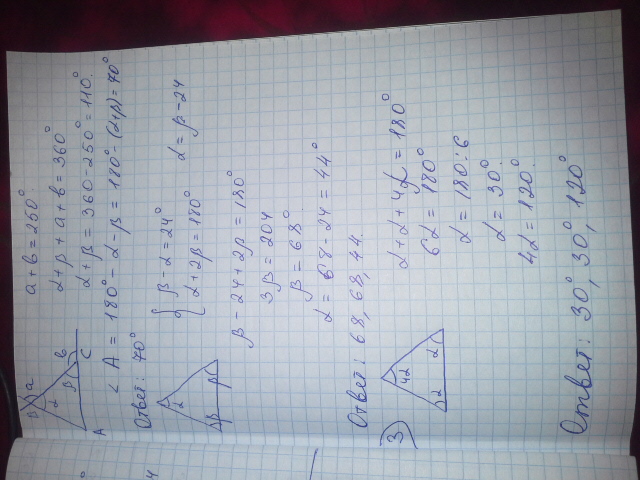 a + b = 250°.
α + β + a + b = 360°
α + β = 360 - 250° = 110°.
< A = 180° - α - β = 180° - (α+β) = 70°
B a
α
β b
A C
Ответ: 70°
{ β - α = 24° α = β - 24
α + 2β = 180°
α
β β
β - 24 + 2β = 180°
3β = 204
β = 68°
α = 68 - 24 = 44°
Ответ: 68, 68, 44.
3)
α + α + 4α = 180°
6α = 180°
α = 180 : 6
α = 30°
4α = 120°.
4α
α α
Ответ: 30°, 30°, 120°